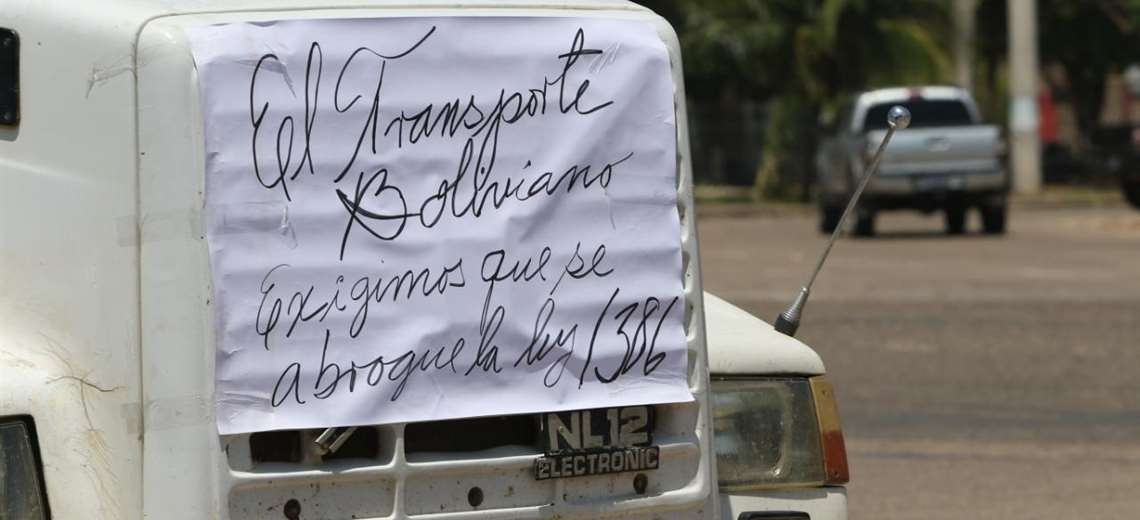 El Transporte
Boliviano
Exigimos que se
abrogue la ley 1386
NL12
ELECTRONIC